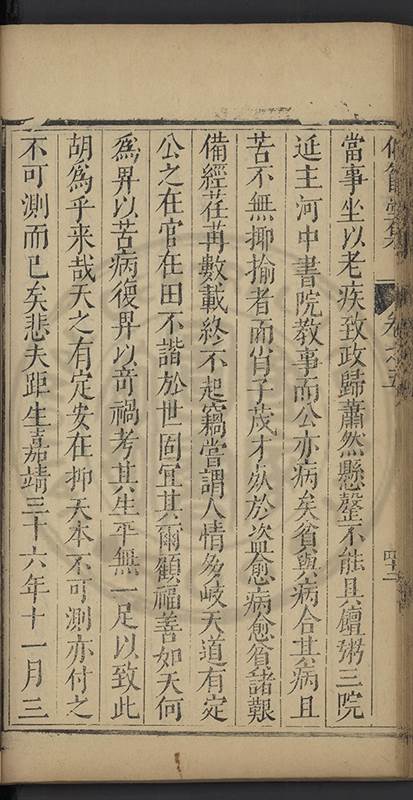 當事坐以老疾致政歸蕭然懸罄不能具饘粥三院
延主河中書院教事而公亦病矣貧與病合其病且
苦不無揶揄者而肖子茂才歿於盜愈病愈貧諸艱
備經荏苒數載終不起竊嘗謂人情多岐天道有定
公之在官在田不諧於世固宜其爾顧福善如天何
為畀以苦病復畀以奇禍考其生平無一足以致此
胡為乎来哉天之有定安在抑天本不可測亦付之
不可測而已矣悲夫距生嘉靖三十六年十一月三